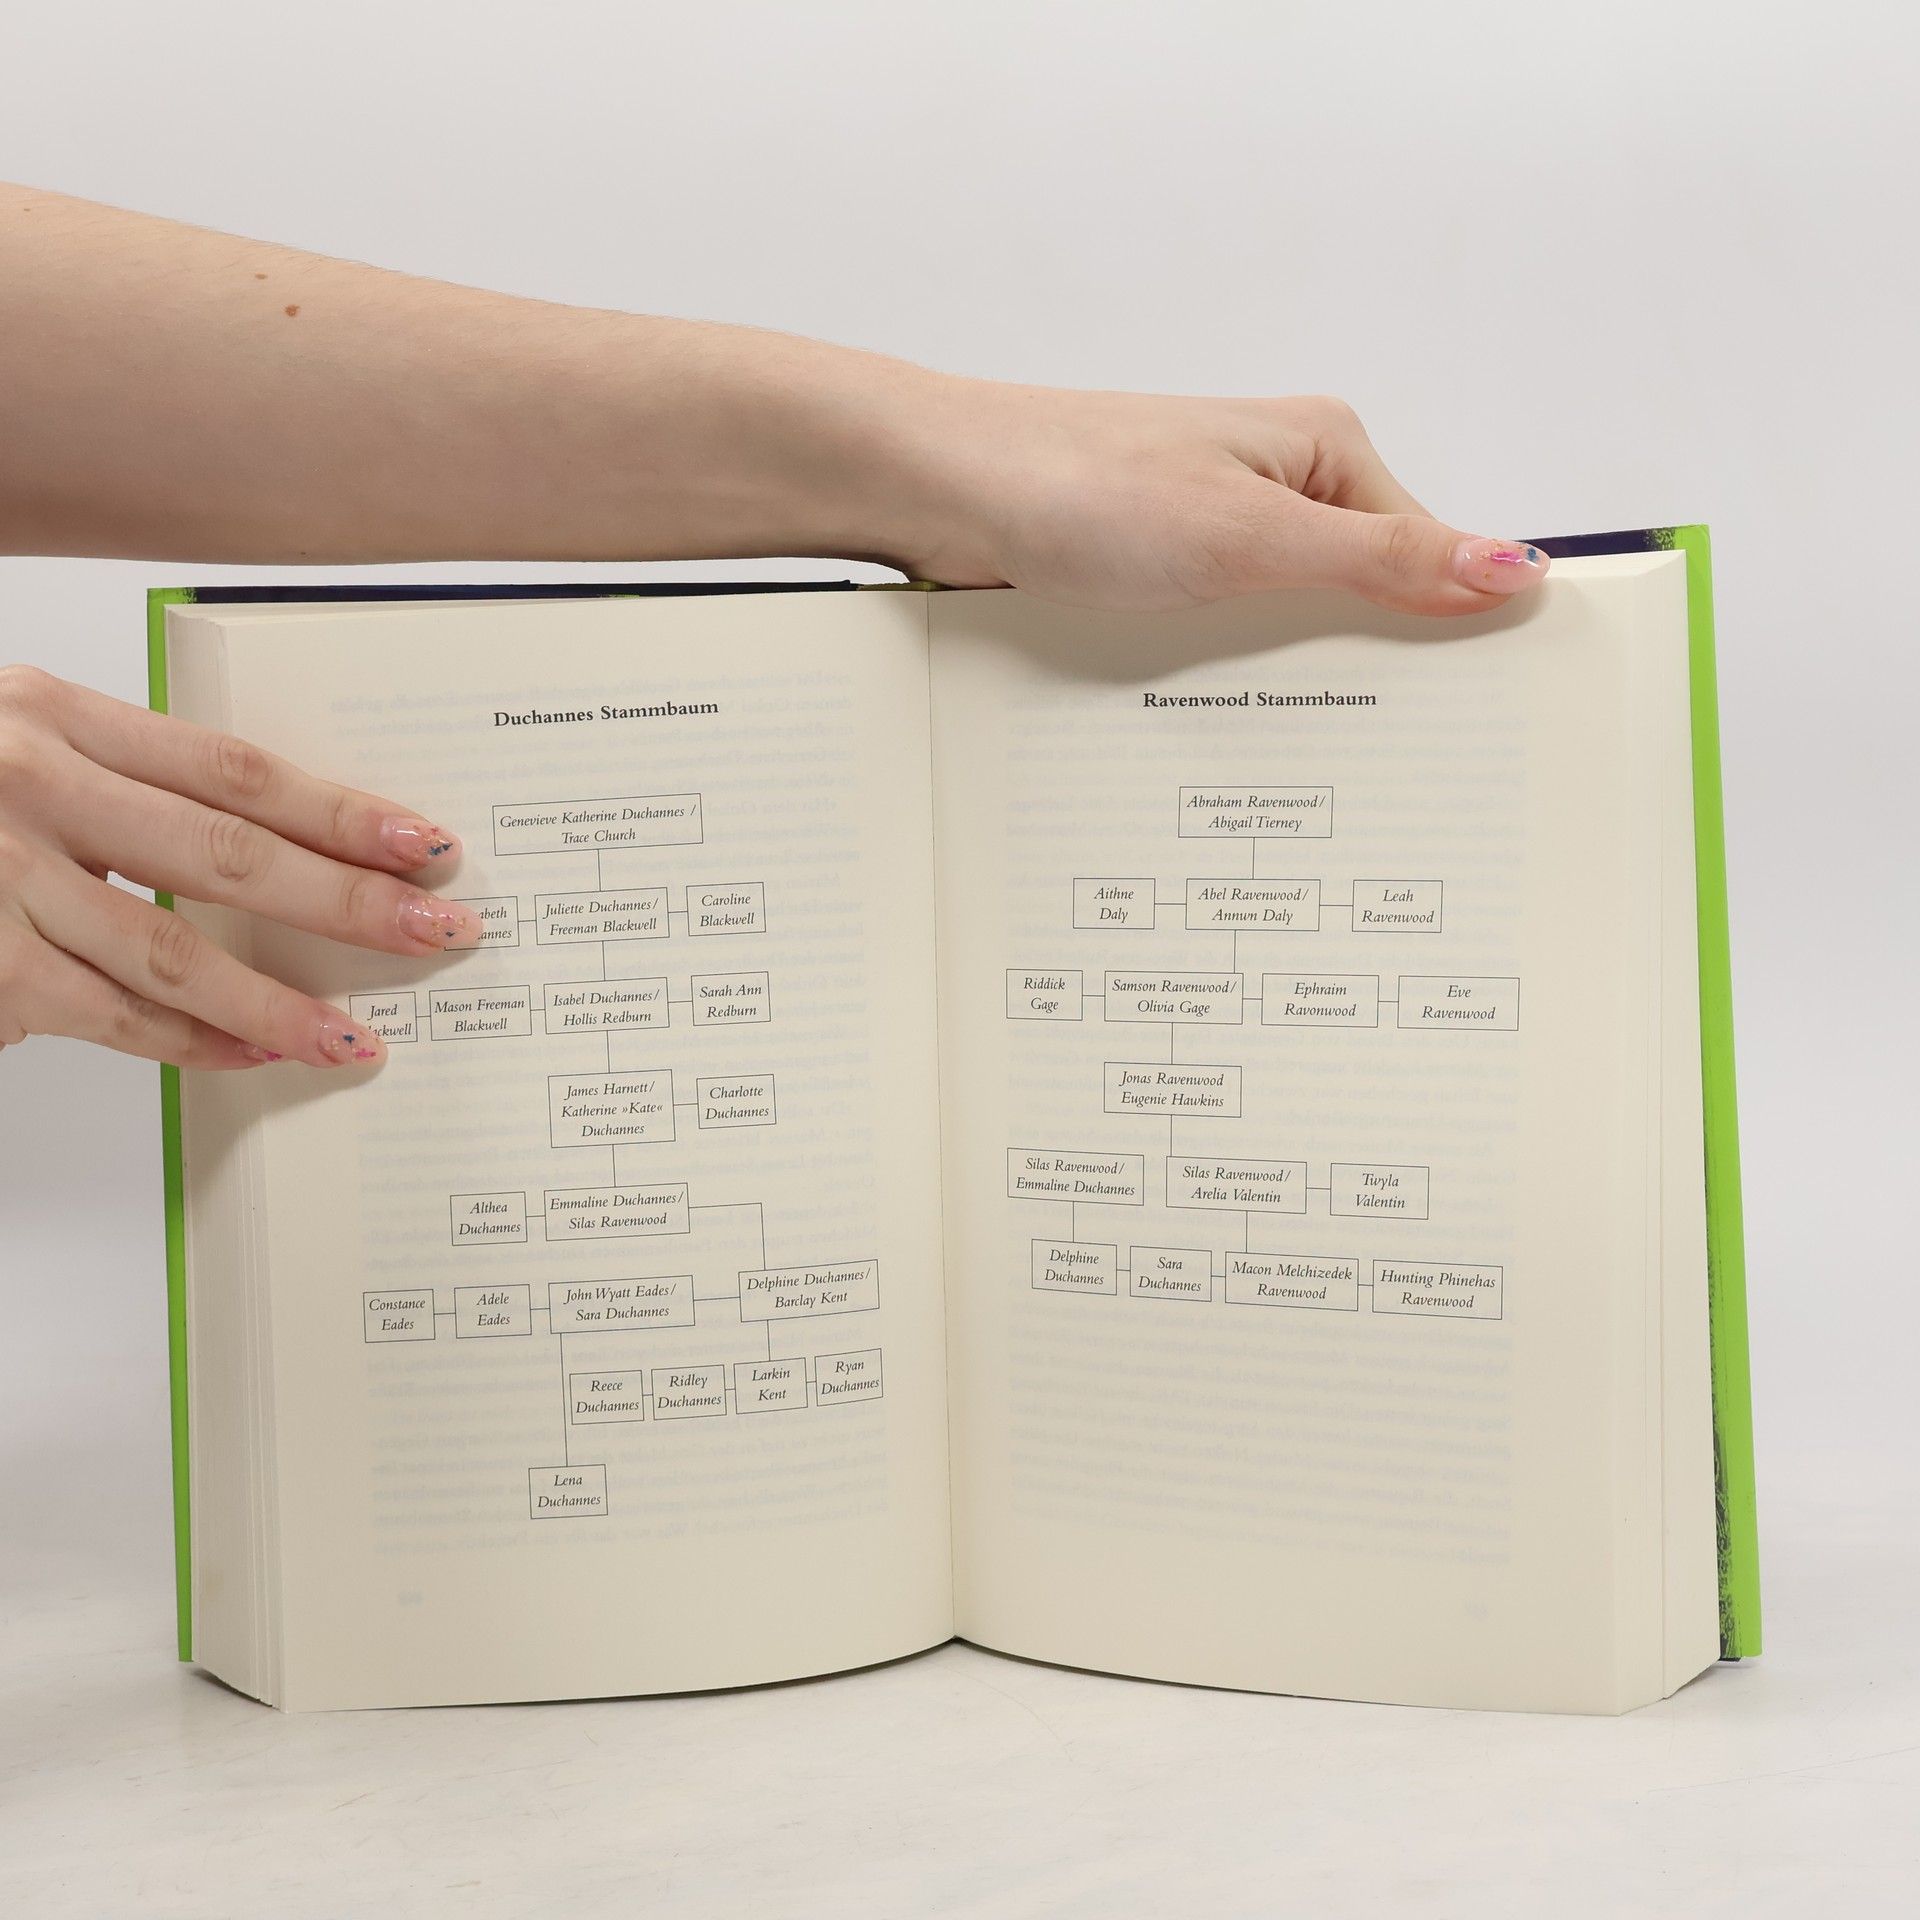 Duchannes Stammbaum
Genevieve Katherine Duchannes /
Trace Church
Juliette Duchannes/
Freeman Blackwell
Caroline
Blackwell
Jared
Mason Freeman
Blackwell
Isabel Duchannes/
Hollis Redburn
Sarah Ann
Redburn
James Harnett/
Katherine »Kate«
Duchannes
Charlotte
Duchannes
Althea
Duchannes
Emmaline Duchannes/
Silas Ravenwood
Constance
Eades
Adele
Eades
John Wyatt Eades/
Sara Duchannes
Delphine Duchannes/
Barclay Kent
Reece
Duchannes
Ridley
Duchannes
Larkin
Kent
Ryan
Duchannes
Lena
Duchannes
Ravenwood Stammbaum
Abraham Ravenwood/
Abigail Tierney
Aithne
Daly
Abel Ravenwood/
Annwn Daly
Leah
Ravenwood
Riddick
Gage
Samson Ravenwood/
Olivia Gage
Ephraim
Ravonwood
Eve
Ravenwood
Jonas Ravenwood
Eugenie Hawkins
Silas Ravenwood/
Emmaline Duchannes
Silas Ravenwood/
Arelia Valentin
Twyla
Valentin
Delphine
Duchannes
Sara
Duchannes
Macon Melchizedek
Ravenwood
Hunting Phinehas
Ravenwood